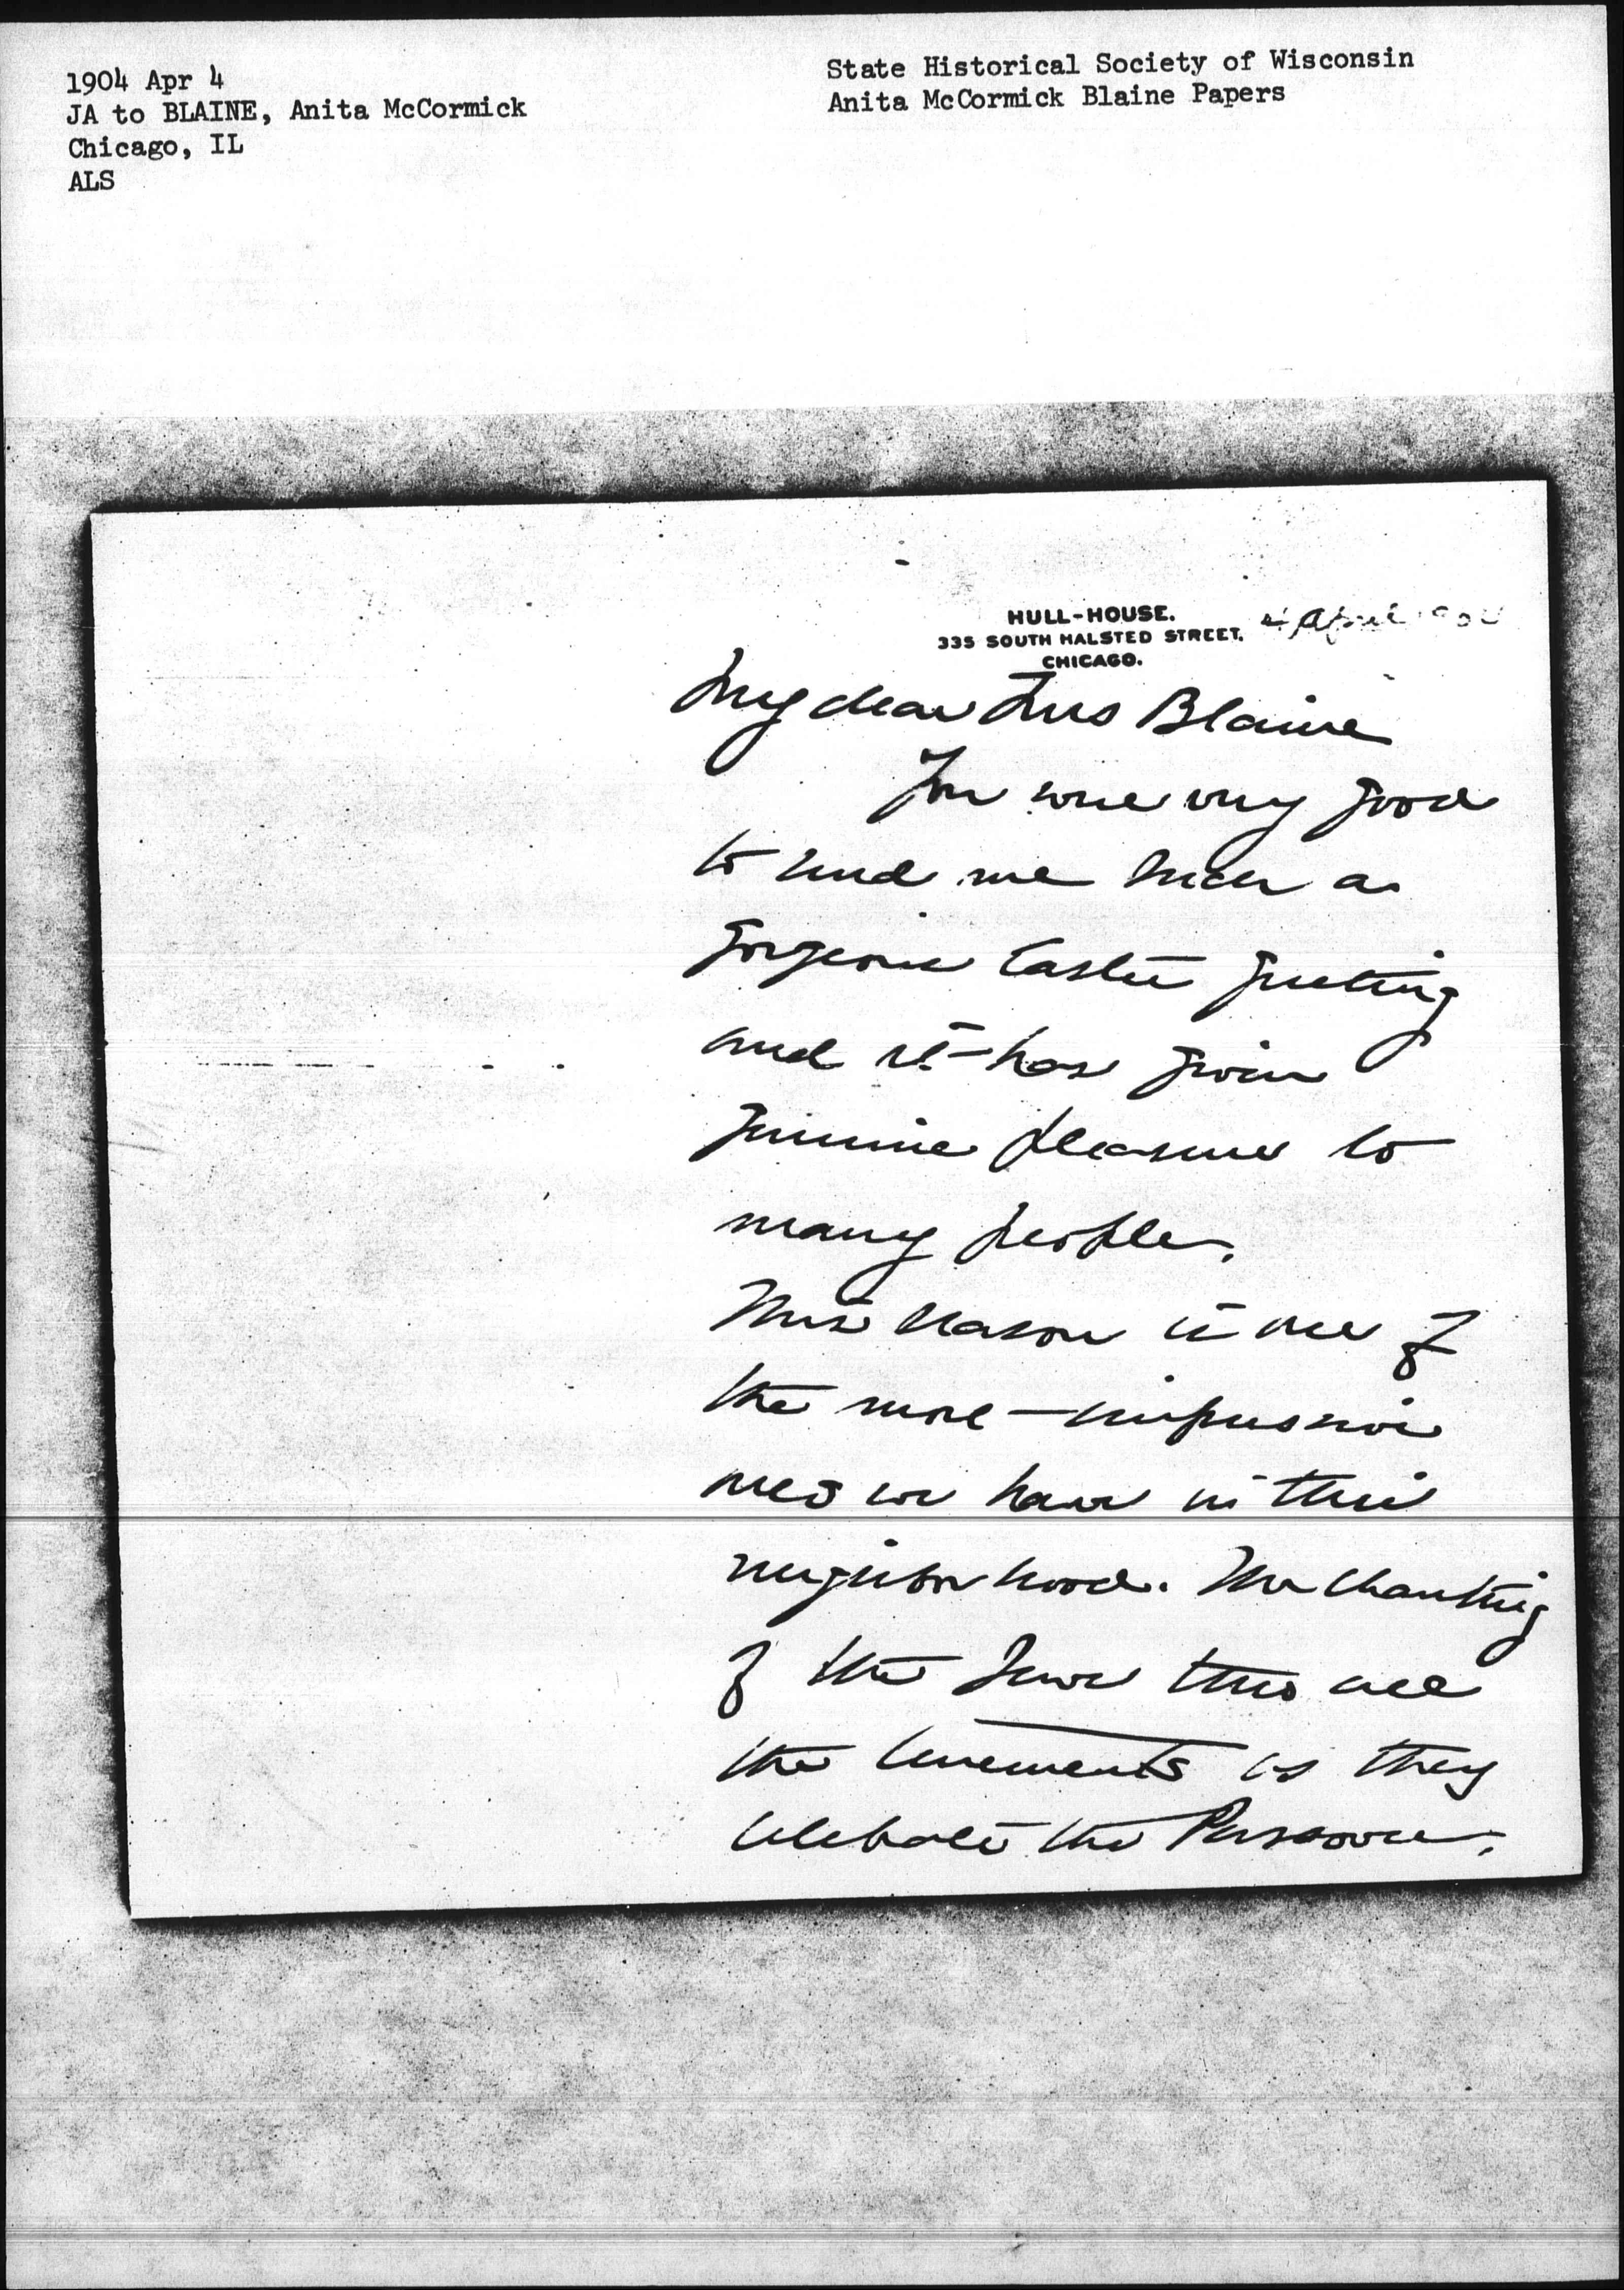 1904 Apr 4
JA to BLAINE, Anita McCormick
Chicago, IL
ALS
State Historical Society of Wisconsin
Anita McCormick Blaine Papers
HULL-HOUSE.
335 SOUTH HALSTED STREET,
CHICAGO.
4 April
My dear Mrs Blaine
You were very good
to send me such a
gorgeous Easter greeting
and it has given
genuine pleasure to
many people.
This season is one of
the most impressive
ones we have in this
neighborhood. The chanting
of the Jews thro all
the tenements as they
celebrate the Passover,